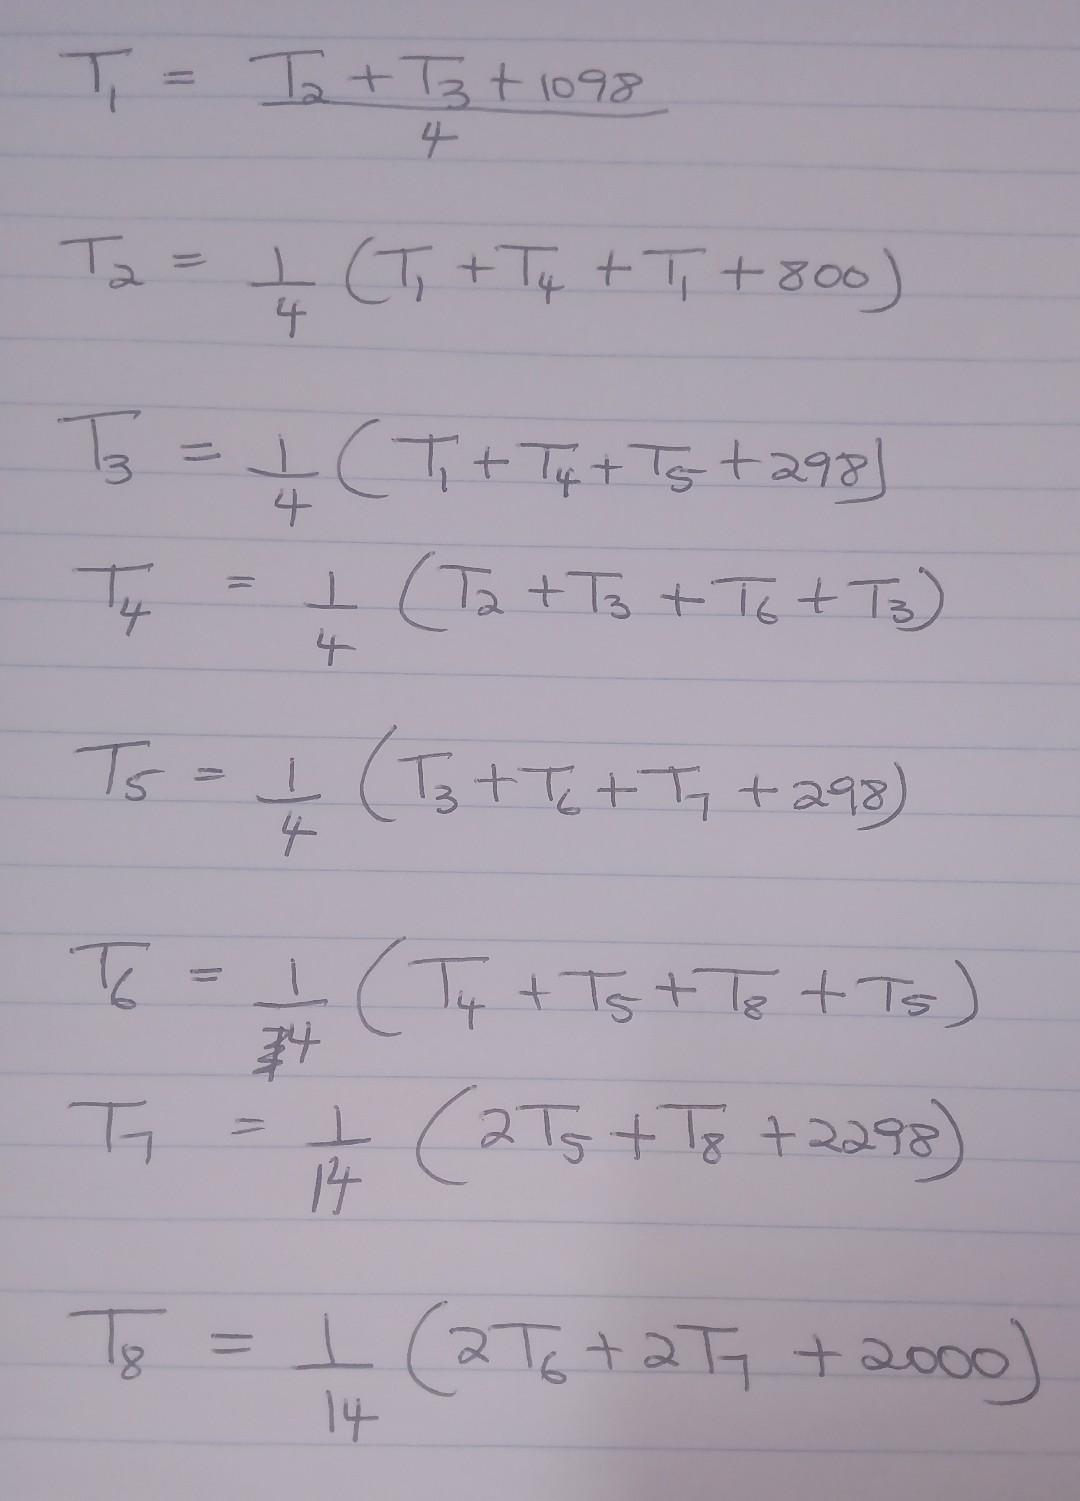 T₁ = (T₂ + T₃ + 1098) / 4
T₂ = 1/4 (T₁ + T₄ + T₁ + 800)
T₃ = 1/4 (T₁ + T₄ + T₅ + 298)
T₄ = 1/4 (T₂ + T₃ + T₆ + T₃)
T₅ = 1/4 (T₃ + T₆ + T₇ + 298)
T₆ = 1/4 (T₄ + T₅ + T₈ + T₅)
T₇ = 1/14 (2T₅ + T₈ + 2298)
T₈ = 1/14 (2T₆ + 2T₇ + 2000)